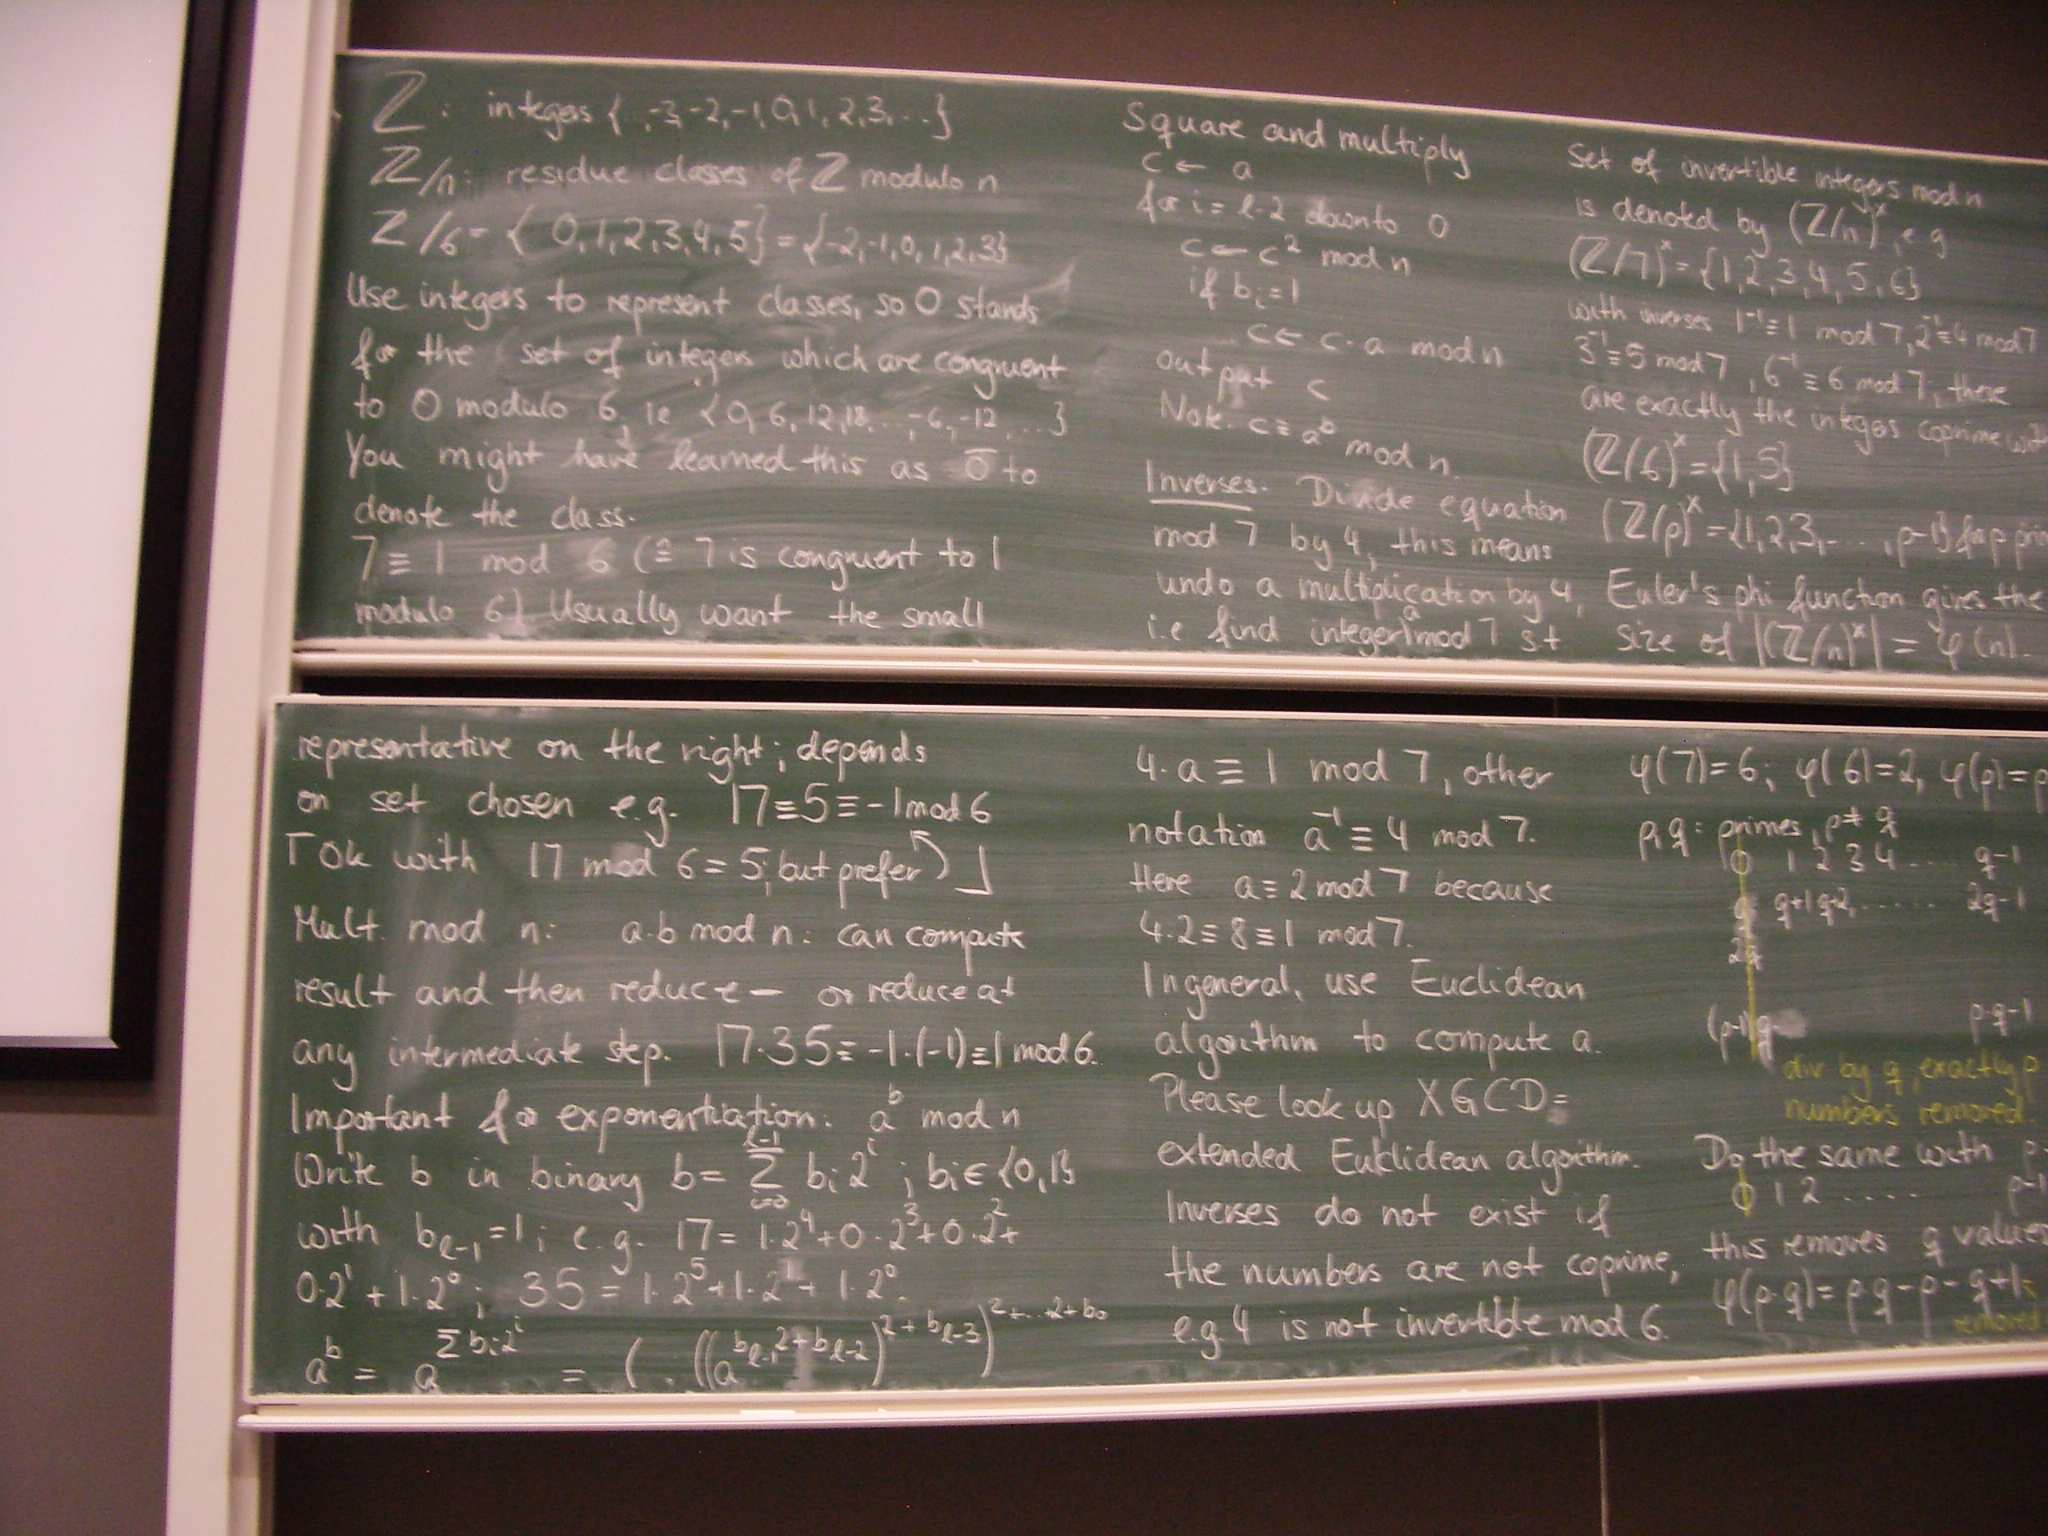 ℤ: integers {..,-3,-2,-1,0,1,2,3,...}
ℤ/n: residue classes of ℤ modulo n
ℤ/6 = {0,1,2,3,4,5} = {-2,-1,0,1,2,3}
Use integers to represent classes, so 0 stands
for the set of integers which are congruent
to 0 modulo 6, ie {0, 6, 12, 18, .., -6, -12, ...}
You might have learned this as 0̅ to
denote the class.
7 ≡ 1 mod 6 (≙ 7 is congruent to 1
modulo 6) Usually want the small
representative on the right; depends
on set chosen e.g. 17≡5≡-1 mod 6
⌈Ok with 17 mod 6 = 5; but prefer ⌋
Mult. mod n: a·b mod n: can compute
result and then reduce – or reduce at
any intermediate step. 17·35≡-1·(-1)≡1 mod 6.
Important for exponentiation: a^b mod n
Write b in binary b= Σ_{i=0}^{ℓ-1} b_i 2^i ; b_i ∈ {0,1}
with b_{ℓ-1}=1; e.g. 17= 1·2^4+0·2^3+0·2^2+
0·2^1 + 1·2^0; 35 = 1·2^5+1·2 + 1·2^0.
a^b = a^{Σ b_i 2^i} = (..((a^{b_{ℓ-1}2+b_{ℓ-2}})^{2+b_{ℓ-3}})^{2+...2+b_0}
Square and multiply
c ← a
for i = ℓ-2 downto 0
c ← c^2 mod n
if b_i=1
c ← c·a mod n
output c
Note: c ≡ a^b mod n.
Inverses. Divide equation
mod 7 by 4, this means
undo a multiplication by 4,
i.e find integer a mod 7 st
4·a ≡ 1 mod 7, other
notation a^{-1} ≡ 4 mod 7.
Here a≡2 mod 7 because
4·2≡8≡1 mod 7.
In general, use Euclidean
algorithm to compute a.
Please look up XGCD=
extended Euklidean algorithm.
Inverses do not exist if
the numbers are not coprime,
e.g. 4 is not invertible mod 6.
Set of invertible integers mod n
is denoted by (ℤ/n)^×, e.g
(ℤ/7)^× = {1,2,3,4,5,6}
with inverses 1^{-1}≡1 mod 7, 2^{-1}≡4 mod 7
3^{-1}≡5 mod 7, 6^{-1}≡6 mod 7; these
are exactly the integers coprime
(ℤ/6)^× = {1,5}
(ℤ/p)^× = {1,2,3,...,p-1} for p
Euler's phi function gives the
size of |(ℤ/n)^×| = φ(n).
φ(7)=6; φ(6)=2, φ(p)=p
p,q: primes, p≠q
0 1 2 3 4 .... q-1
q q+1 q+2, ..... 2q-1
2q
(p-1)q p·q-1
div by q, exactly p
numbers removed.
Do the same with p
0 1 2 ..... p-1
this removes q values
φ(p·q)= pq-p-q+1
removed